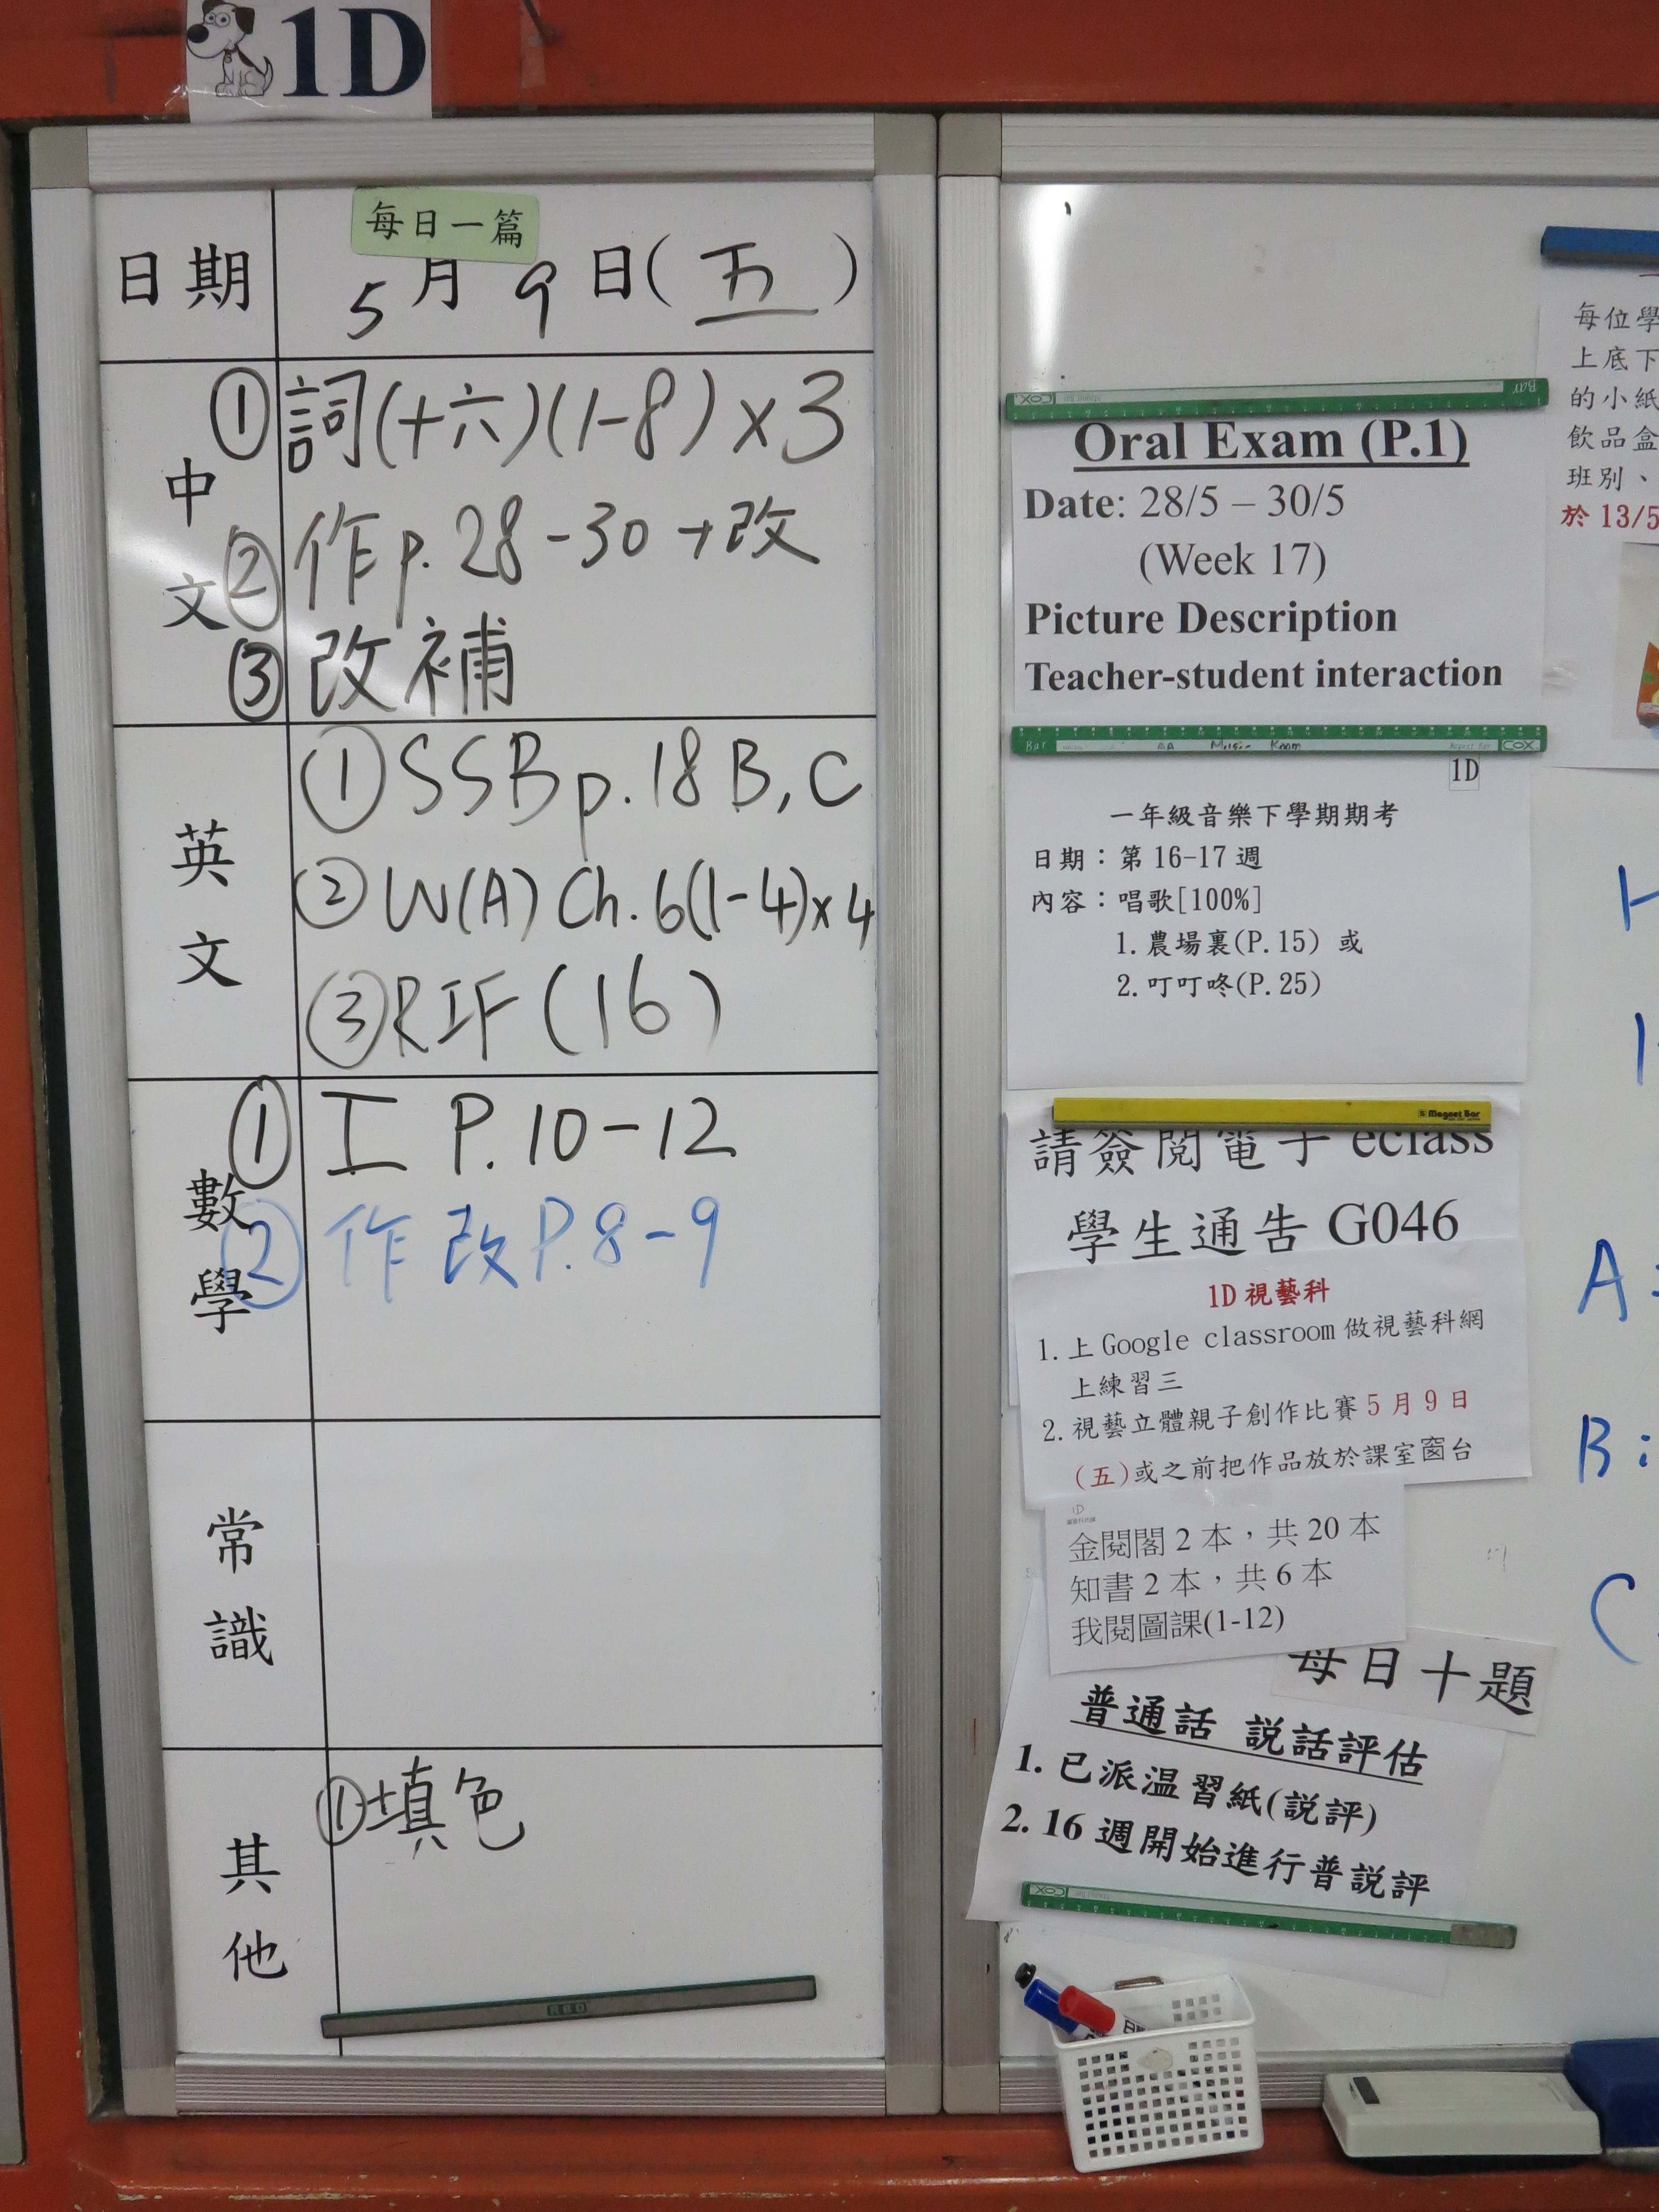 1D
每日一篇
日期 5月9日(五)
中文
①詞(十六)(1-8)×3
②作p.28-30+改
③改補
英文
①SSBp.18B,C
②W(A) Ch.6(1-4)×4
③RIF(16)
數學
①工 P.10-12
②作改P.8-9
常識
其他
①填色
Oral Exam (P.1)
Date: 28/5 – 30/5
(Week 17)
Picture Description
Teacher-student interaction
Bar
Music Room
COX
1D
一年級音樂下學期期考
日期：第 16-17 週
內容：唱歌[100%]
1.農場裏(P.15) 或
2.叮叮咚(P.25)
Magnet Bar
請簽閱電子 eclass
學生通告 G046
1D 視藝科
1.上 Google classroom 做視藝科網
上練習三
2.視藝立體親子創作比賽 5 月 9 日
(五)或之前把作品放於課室窗台
1D
金閱閣 2 本，共 20 本
知書 2 本，共 6 本
我閱圖課(1-12)
每日十題
普通話 説話評估
1. 已派温習紙(説評)
2. 16 週開始進行普説評
COX
每位學
上底下
的小紙
飲品盒
班別、
於 13/5
A:
B:
C